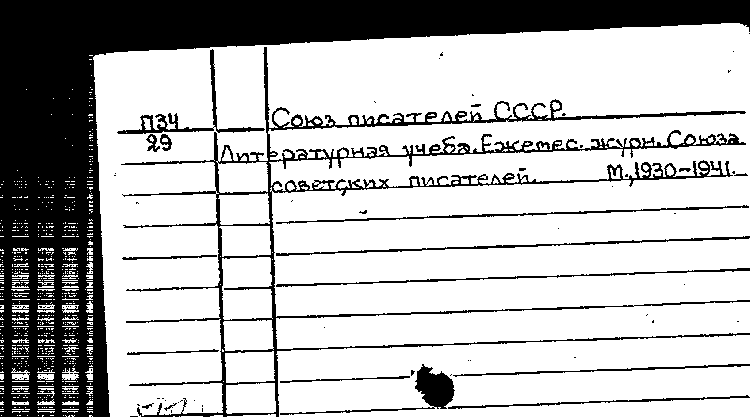 П34 Союз писателей СССР.
29 Литературная учеба. Ежемес. журн. Союза
советских писателей. М., 1930-1941.